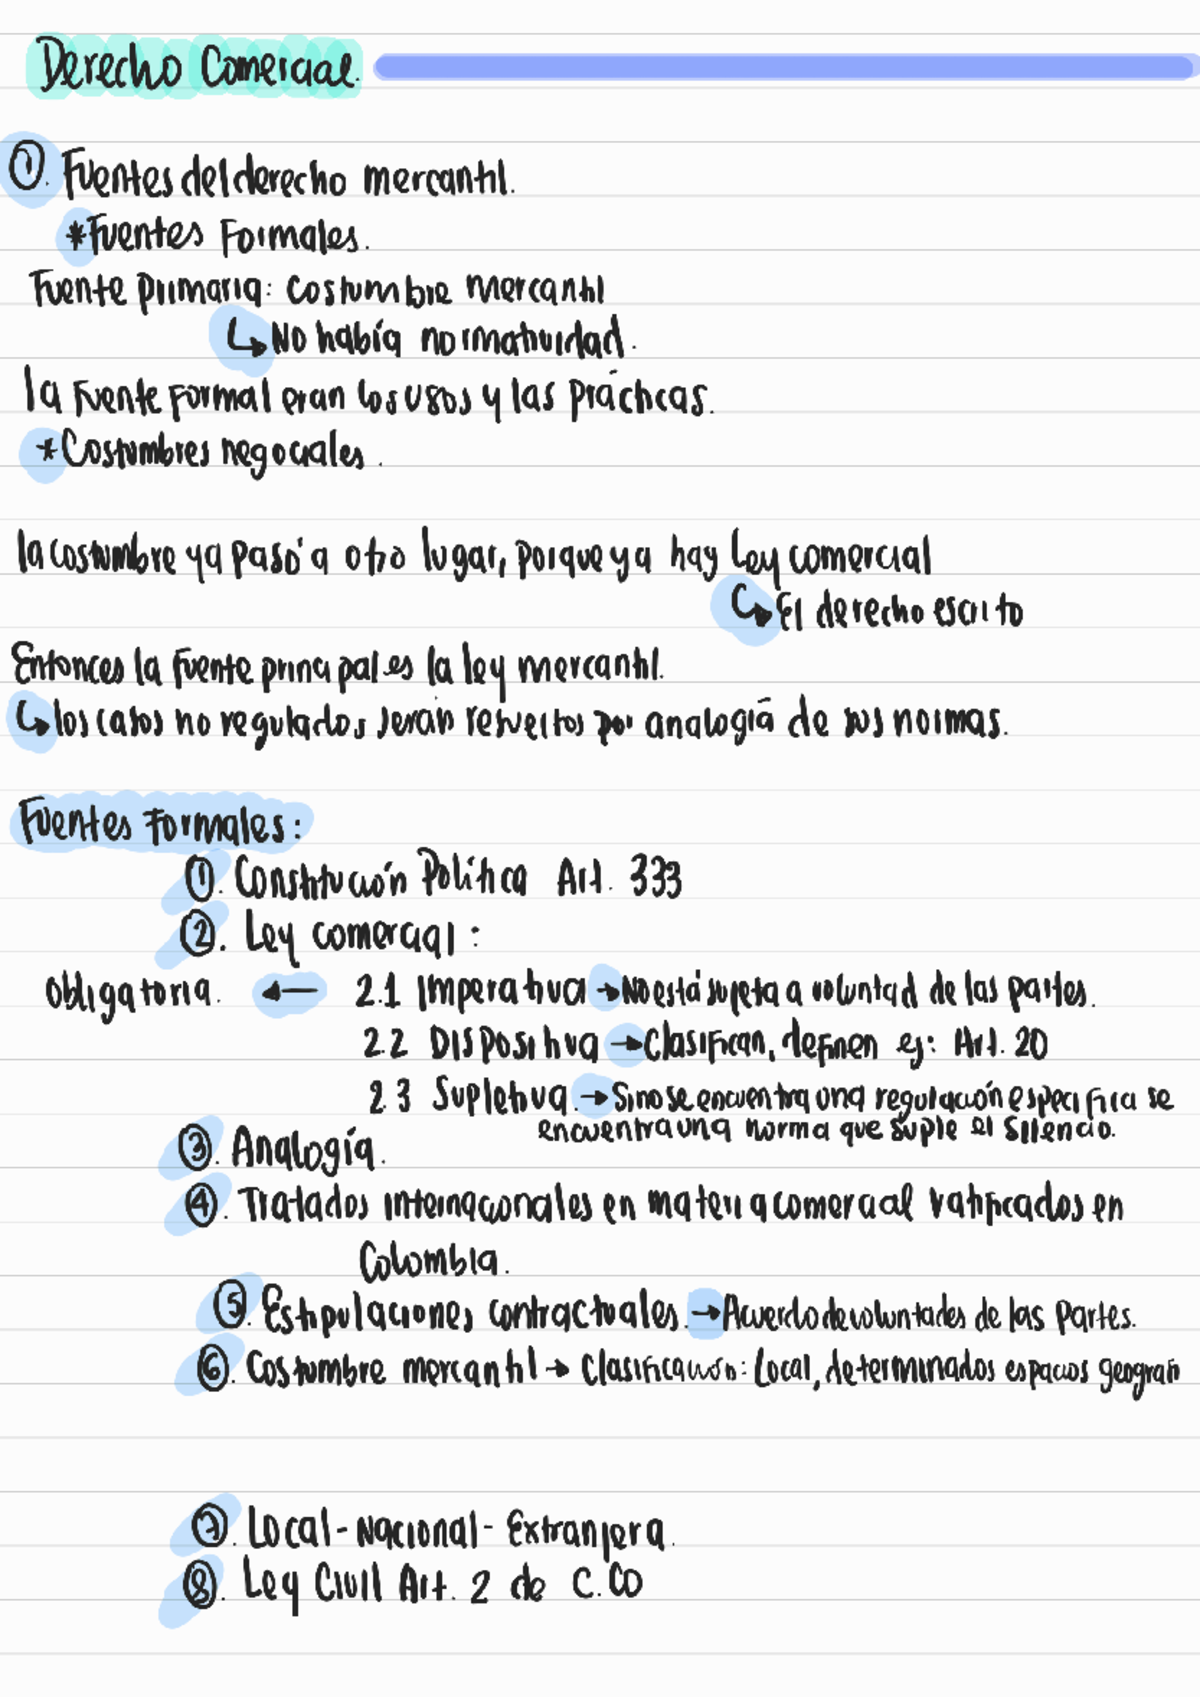 Derecho Comercial.
①. Fuentes del derecho mercantil.
*Fuentes Formales.
Fuente primaria: costumbre mercantil
↳ No había normatividad.
la fuente formal eran los usos y las prácticas.
*Costumbres negociales.
la costumbre ya pasó a otro lugar, porque ya hay Ley comercial
↳ El derecho escrito
Entonces la fuente principal es la ley mercantil.
↳ los casos no regulados serán resueltos por analogía de sus normas.
Fuentes Formales:
①. Constitución Política Art. 333
②. Ley comercial:
Obligatoria. ← 2.1 Imperativa → No está sujeta a voluntad de las partes.
2.2 Dispositiva → Clasifican, definen ej: Art. 20
2.3 Supletiva. → Si no se encuentra una regulación especifica se
encuentra una norma que suple el silencio.
③. Analogía.
④. Tratados internacionales en materia comercial ratificados en
Colombia.
⑤. Estipulaciones contractuales. → Acuerdo de voluntades de las Partes.
⑥. Costumbre mercantil → Clasificación: Local, determinados espacios geografi
⑦. Local - Nacional - Extranjera.
⑧. Ley Civil Art. 2 de C.CO